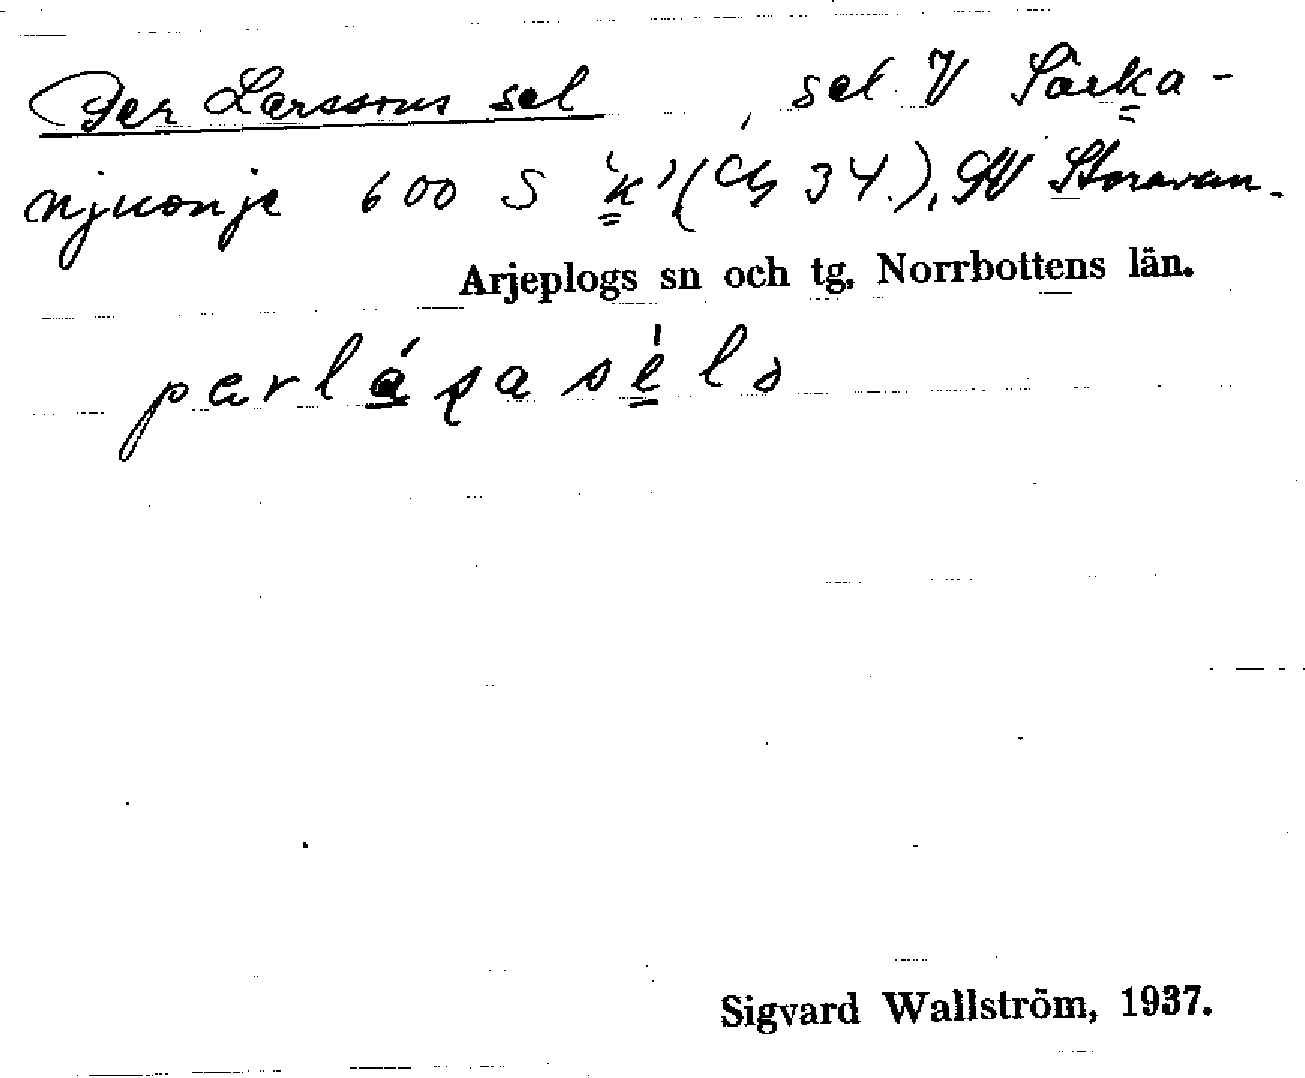 Per Larssons sel, sel V Sarka-
njuonje 600 S 'k' (Cb 34.), SV Storavan.
Arjeplogs sn och tg, Norrbottens län.
perlásaséls
Sigvard Wallström, 1937.